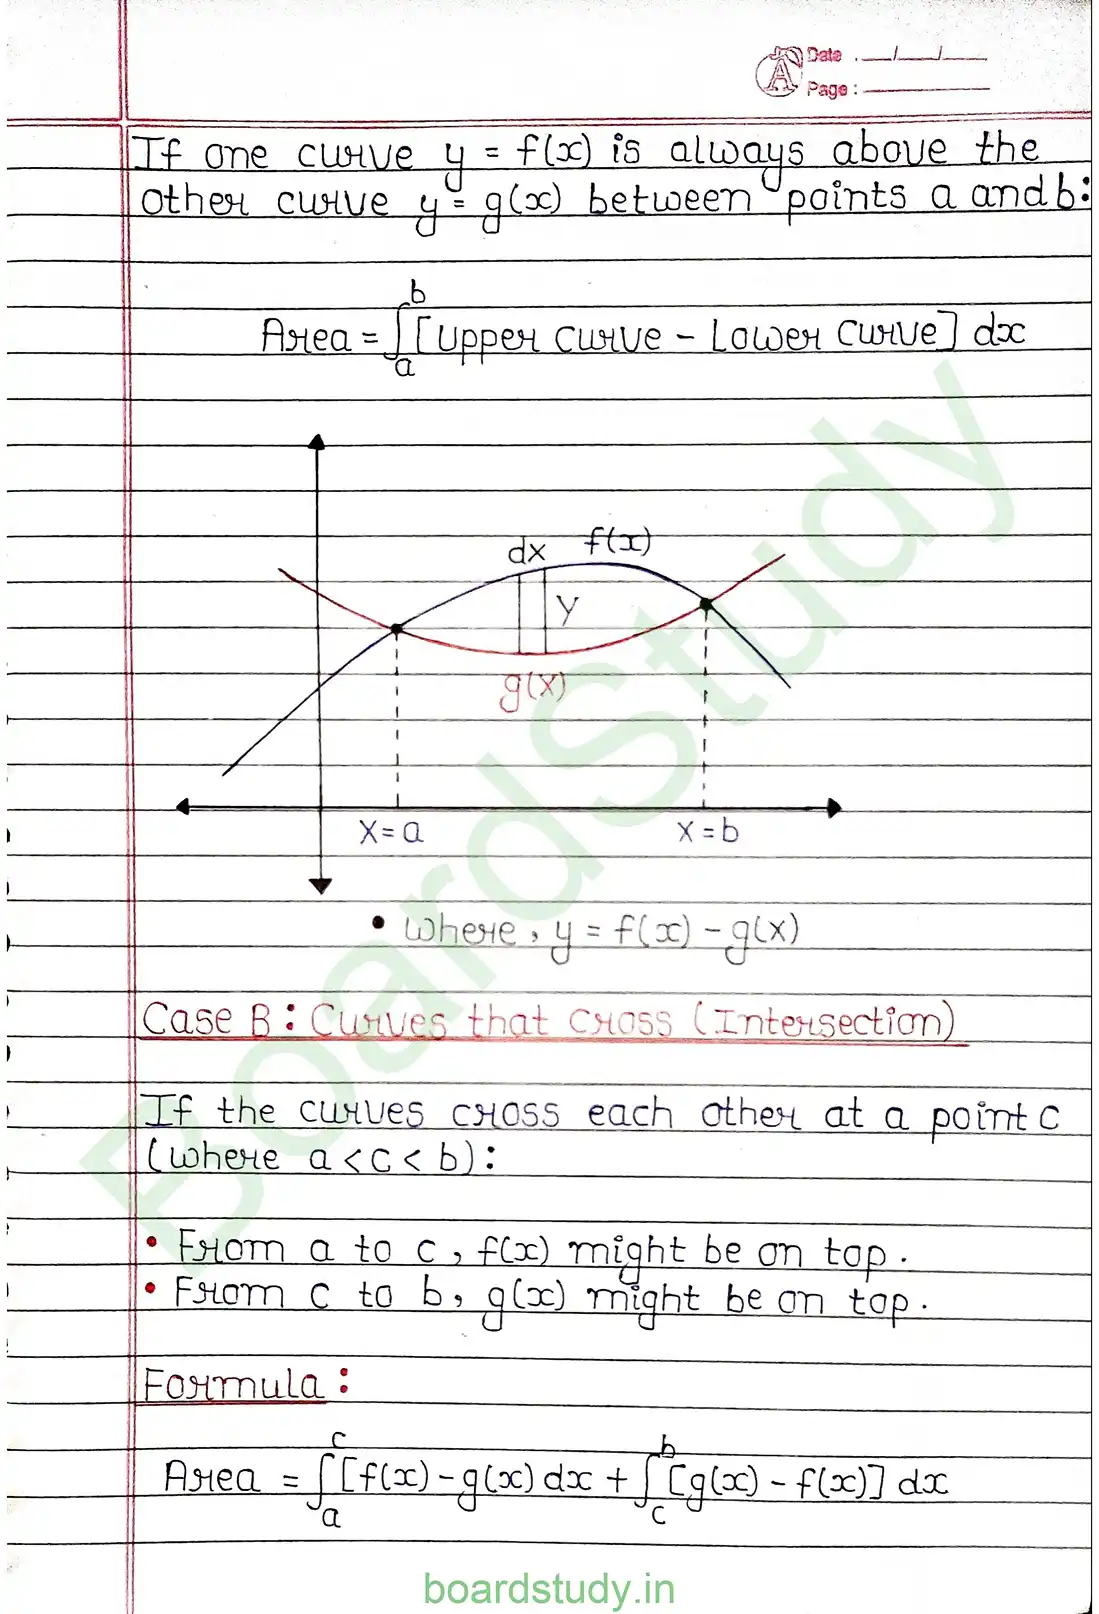 Date : __/__/__
Page : ______
If one curve y = f(x) is always above the
other curve y = g(x) between points a and b:
b
Area = ∫ [upper curve - Lower curve] dx
a
dx f(x)
y
g(x)
x=a x=b
• Where, y = f(x) - g(x)
Case B : Curves that cross (Intersection)
If the curves cross each other at a point c
(where a < c < b):
• From a to c, f(x) might be on top.
• From c to b, g(x) might be on top.
Formula :
c b
Area = ∫ [f(x) - g(x) dx + ∫ [g(x) - f(x)] dx
a c
BoardStudy
boardstudy.in